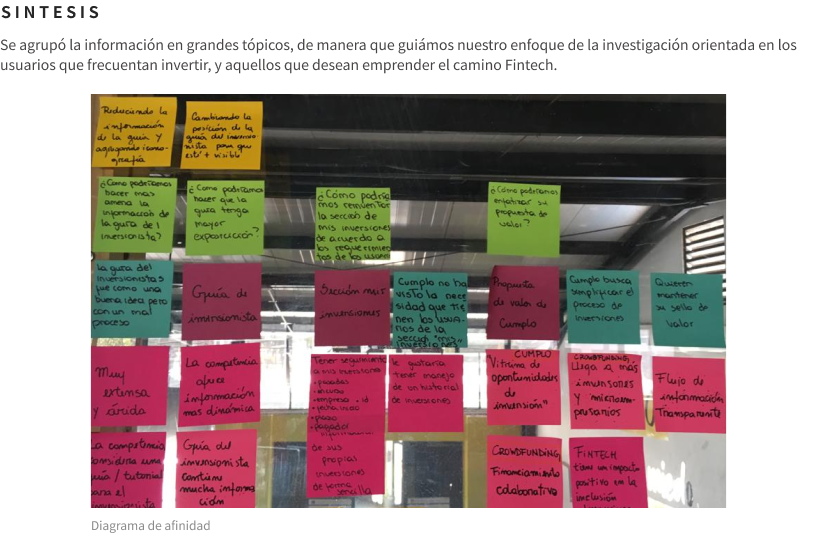 SINTESIS
Se agrupó la información en grandes tópicos, de manera que guiámos nuestro enfoque de la investigación orientada en los
usuarios que frecuentan invertir, y aquellos que desean emprender el camino Fintech.
Reduciendo la
información
de la guía y
agregando icono-
grafía
Cambiando la
posición de la
guía del inversio
nista para que
esté + visible
¿Cómo podríamos
hacer más
amena la
información de
la guía del
inversionista?
¿Cómo podríamos
hacer que la
guía tenga
mayor
exposición?
¿Cómo podría
mos reinventar
la sección de
mis inversiones
de acuerdo a
los requerimien
tos de los usuarios
¿Cómo podríamos
enfatizar su
propuesta de
valor?
la guía del
inversionistas
fue como una
buena idea pero
con un mal
proceso
Guía de
inversionista
Sección mis
inversiones
Cumplo no ha
visto la nece
sidad que tie
nen los usua-
rios de la
sección "mis
inversiones"
Propuesta
de valor de
Cumplo
Cumplo busca
simplificar el
proceso de
inversiones
Quieren
mantener
su sello de
valor
Muy
extensa
y árida
La competencia
ofrece
información
mas dinámica
Tener seguimiento
a mis inversiones
• pagadas
• empresa + id
• fecha inicio
• plazo
• pagador
información
de sus
propias
inversiones
de forma
sencilla
le gustaría
tener manejo
de un historial
de inversiones
CUMPLO
Vitrina de
oportunidades
de inversión"
CROWDFUNDING,
Llega a más
inversores
y microem-
presarios
Flujo de
información
Transparente
La competencia
considera una
guía / tutorial
para el
inversionista
Guía del
inversionista
contiene
mucha informa
ción
CROWDFUNDING,
Financiamiento
colaborativo
FINTECH
tiene un impacto
positivo en la
inclusión
Diagrama de afinidad